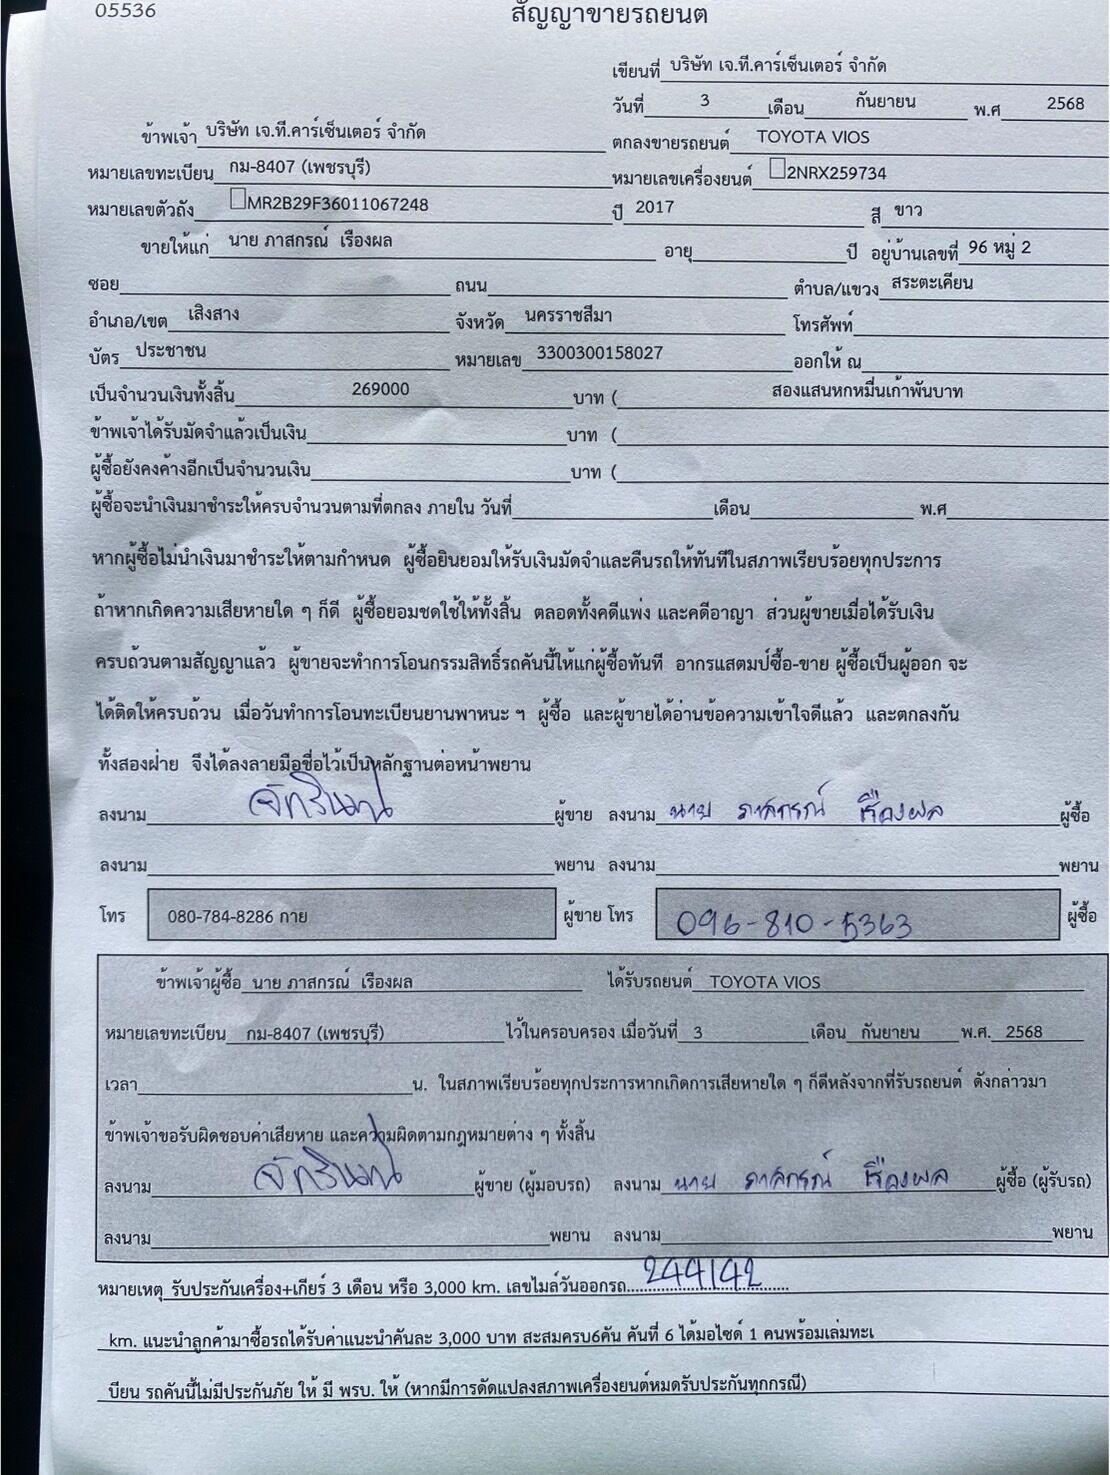 05536
สัญญาขายรถยนต์
เขียนที่ บริษัท เจ.ที.คาร์เซ็นเตอร์ จำกัด
วันที่ 3 เดือน กันยายน พ.ศ 2568
ข้าพเจ้า บริษัท เจ.ที.คาร์เซ็นเตอร์ จำกัด ตกลงขายรถยนต์ TOYOTA VIOS
หมายเลขทะเบียน กม-8407 (เพชรบุรี) หมายเลขเครื่องยนต์ 2NRX259734
หมายเลขตัวถัง MR2B29F36011067248 ปี 2017 สี ขาว
ขายให้แก่ นาย ภาสกรณ์ เรืองผล อายุ ปี อยู่บ้านเลขที่ 96 หมู่ 2
ซอย ถนน ตำบล/แขวง สระตะเคียน
อำเภอ/เขต เสิงสาง จังหวัด นครราชสีมา โทรศัพท์
บัตร ประชาชน หมายเลข 3300300158027 ออกให้ ณ
เป็นจำนวนเงินทั้งสิ้น 269000 บาท ( สองแสนหกหมื่นเก้าพันบาท
ข้าพเจ้าได้รับมัดจำแล้วเป็นเงิน บาท (
ผู้ซื้อยังคงค้างอีกเป็นจำนวนเงิน บาท (
ผู้ซื้อจะนำเงินมาชำระให้ครบจำนวนตามที่ตกลง ภายใน วันที่ เดือน พ.ศ
หากผู้ซื้อไม่นำเงินมาชำระให้ตามกำหนด ผู้ซื้อยินยอมให้รับเงินมัดจำและคืนรถให้ทันทีในสภาพเรียบร้อยทุกประการ
ถ้าหากเกิดความเสียหายใด ๆ ก็ดี ผู้ซื้อยอมชดใช้ให้ทั้งสิ้น ตลอดทั้งคดีแพ่ง และคดีอาญา ส่วนผู้ขายเมื่อได้รับเงิน
ครบถ้วนตามสัญญาแล้ว ผู้ขายจะทำการโอนกรรมสิทธิ์รถคันนี้ให้แก่ผู้ซื้อทันที อากรแสตมป์ซื้อ-ขาย ผู้ซื้อเป็นผู้ออก จะ
ได้ติดให้ครบถ้วน เมื่อวันทำการโอนทะเบียนยานพาหนะ ฯ ผู้ซื้อ และผู้ขายได้อ่านข้อความเข้าใจดีแล้ว และตกลงกัน
ทั้งสองฝ่าย จึงได้ลงลายมือชื่อไว้เป็นหลักฐานต่อหน้าพยาน
ลงนาม ผู้ขาย ลงนาม นาย ภาสกรณ์ เรืองผล ผู้ซื้อ
ลงนาม พยาน ลงนาม พยาน
โทร 080-784-8286 กาย ผู้ขาย โทร 096-810-5363 ผู้ซื้อ
ข้าพเจ้าผู้ซื้อ นาย ภาสกรณ์ เรืองผล ได้รับรถยนต์ TOYOTA VIOS
หมายเลขทะเบียน กม-8407 (เพชรบุรี) ไว้ในครอบครอง เมื่อวันที่ 3 เดือน กันยายน พ.ศ. 2568
เวลา น. ในสภาพเรียบร้อยทุกประการหากเกิดการเสียหายใด ๆ ก็ดีหลังจากที่รับรถยนต์ ดังกล่าวมา
ข้าพเจ้าขอรับผิดชอบค่าเสียหาย และความผิดตามกฎหมายต่าง ๆ ทั้งสิ้น
ลงนาม ผู้ขาย (ผู้มอบรถ) ลงนาม นาย ภาสกรณ์ เรืองผล ผู้ซื้อ (ผู้รับรถ)
ลงนาม พยาน ลงนาม พยาน
หมายเหตุ รับประกันเครื่อง+เกียร์ 3 เดือน หรือ 3,000 km. เลขไมล์วันออกรถ 244142
km. แนะนำลูกค้ามาซื้อรถได้รับค่าแนะนำคันละ 3,000 บาท สะสมครบ6คัน คันที่ 6 ได้มอไซด์ 1 คนพร้อมเล่มทะเ
บียน รถคันนี้ไม่มีประกันภัย ให้ มี พรบ. ให้ (หากมีการดัดแปลงสภาพเครื่องยนต์หมดรับประกันทุกกรณี)